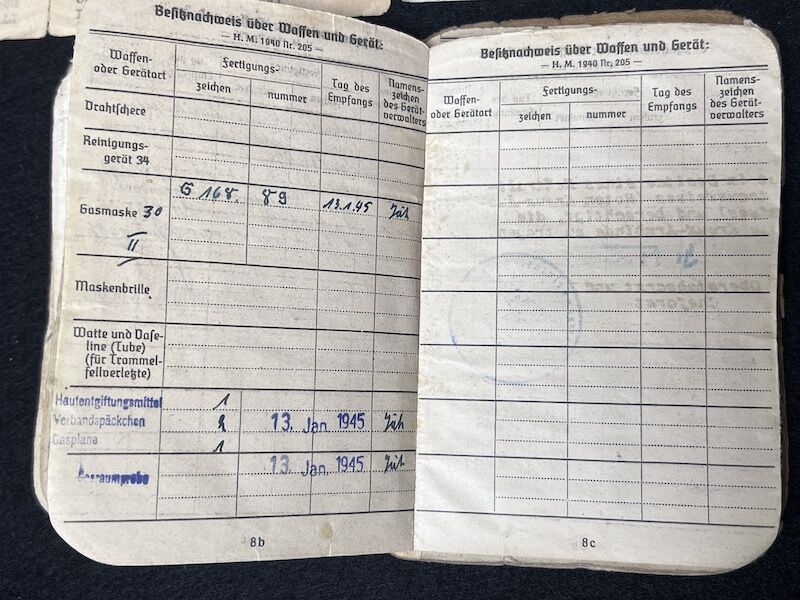 Besitznachweis über Waffen und Gerät:
— H. M. 1940 Nr. 205 —
Waffen-
oder Gerätart
Fertigungs-
zeichen
nummer
Tag des
Empfangs
Namens-
zeichen
des Gerät-
verwalters
Drahtschere
Reinigungs-
gerät 34
Gasmaske 30
II
G 168. 89 13.1.45
Maskenbrille
Watte und Vase-
line (Tube)
(für Trommel-
fellverletzte)
Hautentgiftungsmittel 1
Verbandspäckchen 2 13. Jan 1945
Gasplane 1
Gasraumprobe 13. Jan 1945
8b
Besitznachweis über Waffen und Gerät:
— H. M. 1940 Nr. 205 —
Waffen-
oder Gerätart
Fertigungs-
zeichen
nummer
Tag des
Empfangs
Namens-
zeichen
des Gerät-
verwalters
8c